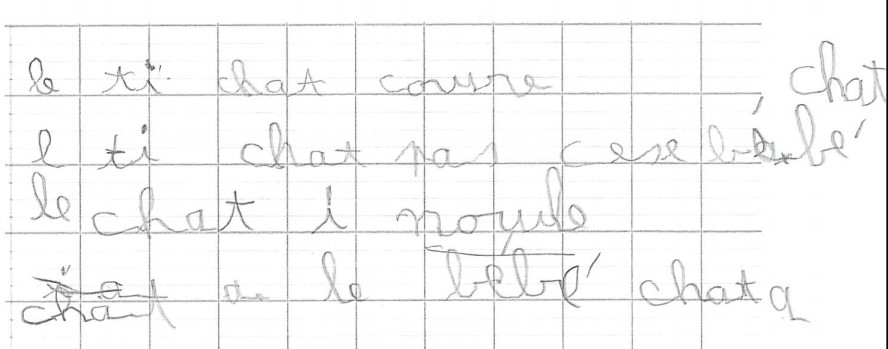 le ti chat courre
chat
l ti chat pas cese bébé
le chat i roule
a le bébé chat a